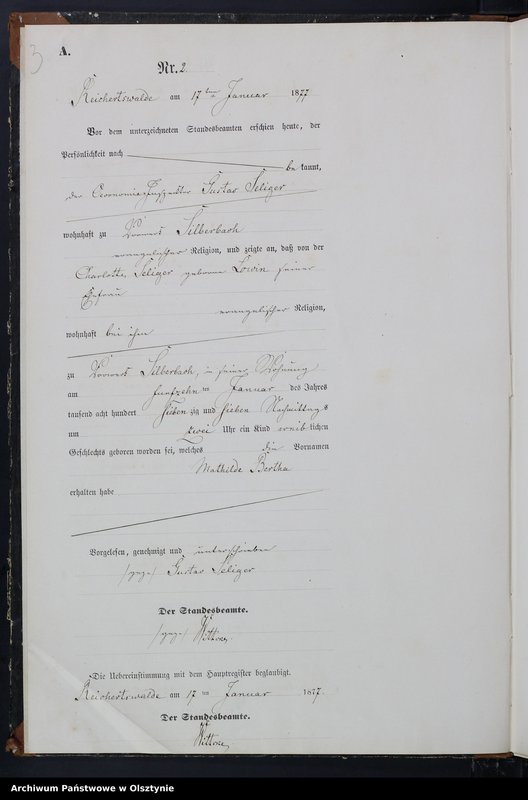 3
A.
Nr. 2.
Reichertswalde am 17 ten Januar 1877
Vor dem unterzeichneten Standesbeamten erschien heute, der
Persönlichkeit nach
be kannt,
der Oeconomie Inspector Gustav Seliger
wohnhaft zu Vorwerk Silberbach
evangelischer Religion, und zeigte an, daß von der
Charlotte Seliger geborne Lowin seiner
Ehefrau
evangelischer Religion,
wohnhaft bei ihm
zu Vorwerk Silberbach, in seiner Wohnung
am fünfzehn ten Januar des Jahres
tausend acht hundert sieben zig und sieben Nachmittags
um zwei Uhr ein Kind weib lichen
Geschlechts geboren worden sei, welches die Vornamen
Mathilde Bertha
erhalten habe
Vorgelesen, genehmigt und unterschrieben
/gez./ Gustav Seliger
Der Standesbeamte.
/gez./
Die Uebereinstimmung mit dem Hauptregister beglaubigt.
Reichertswalde am 17 ten Januar 1877.
Der Standesbeamte.
Archiwum Państwowe w Olsztynie